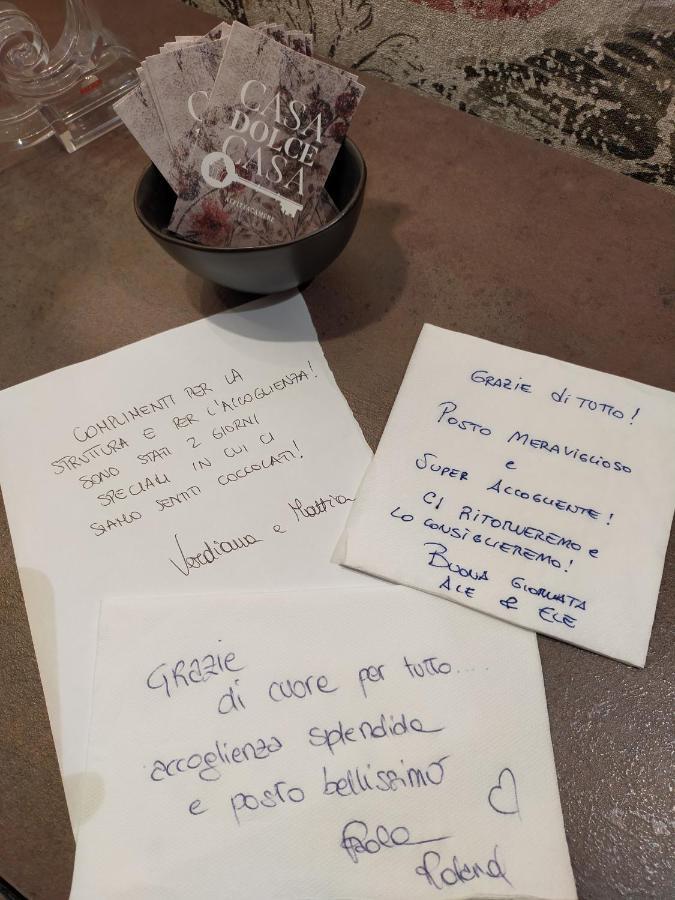 CASA
DOLCE
CASA
AFFITTACAMERE
COMPLIMENTI PER LA
STRUTTURA E PER L'ACCOGLIENZA!
SONO STATI 2 GIORNI
SPECIALI IN CUI CI
SIAMO SENTITI COCCOLATI!
Verdiana e Mattia
GRAZIE di TUTTO!
POSTO MERAVIGLIOSO
e
SUPER ACCOGLIENTE!
CI RITORNEREMO e
LO CONSIGLIEREMO!
BUONA GIORNATA
ALE & ELE
GRAZIE
di cuore per tutto.....
accoglienza splendida
e posto bellissimo
Paola
Roland